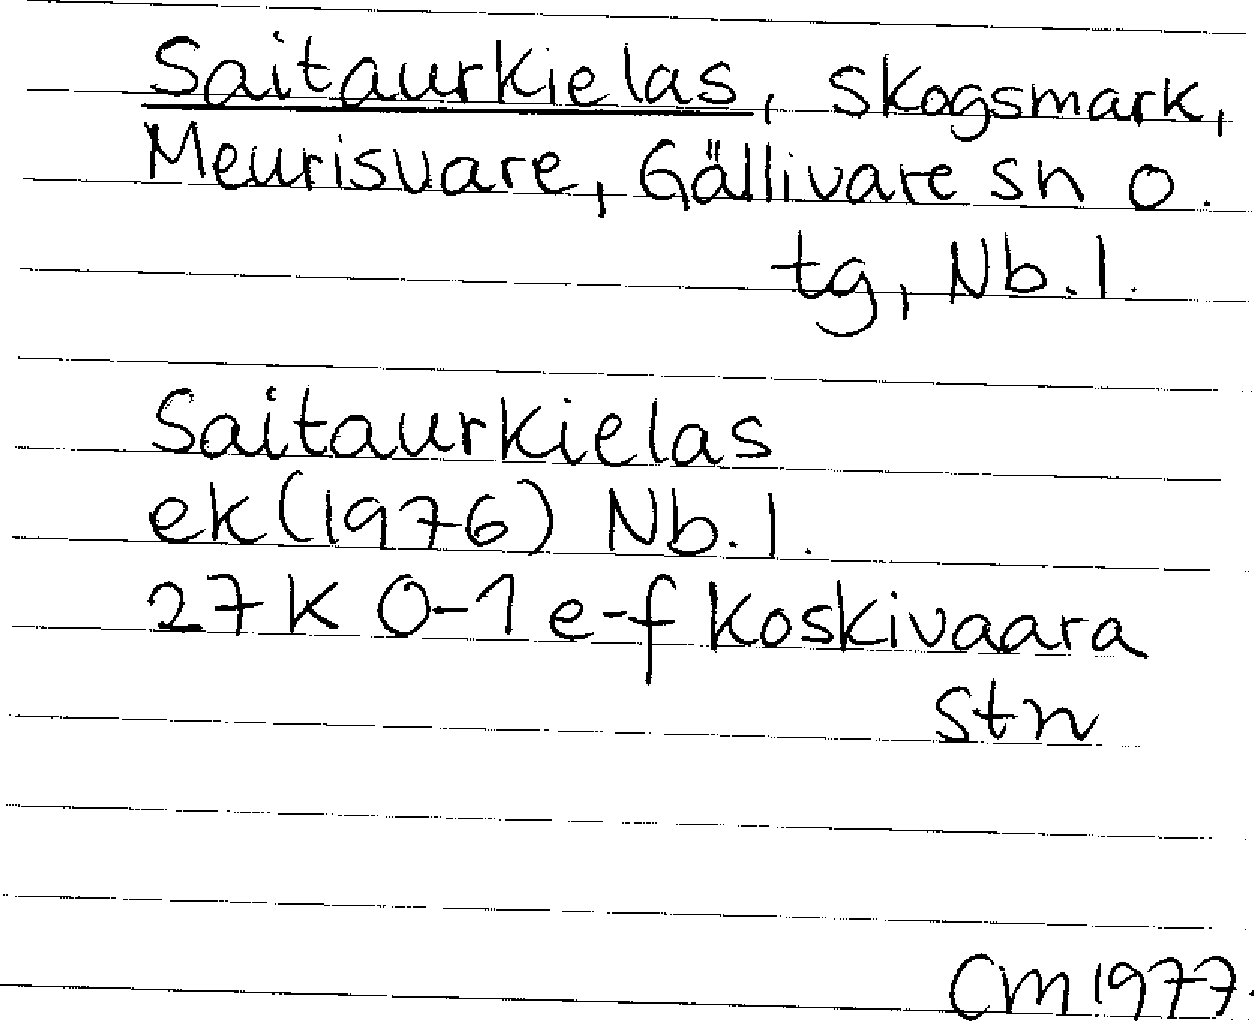 Saitaurkielas, skogsmark,
Meurisvare, Gällivare sn o.
tg, Nb.l.
Saitaurkielas
ek (1976) Nb.l.
27 K 0-1 e-f Koskivaara
stn
CM 1977.